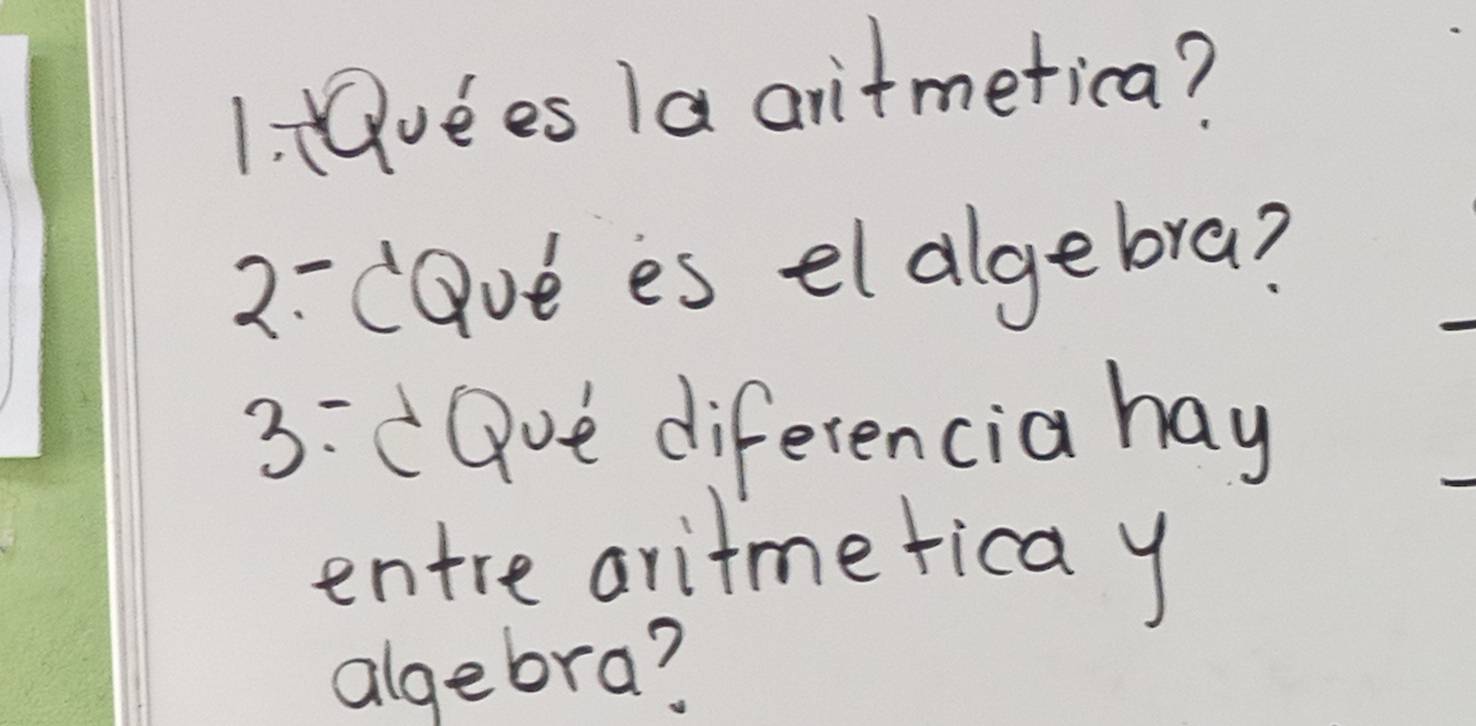 1.-¿Qué es la aritmetica?
2.-¿Qué es el algebra?
3.-¿Qué diferencia hay
entre aritmetica y
algebra?